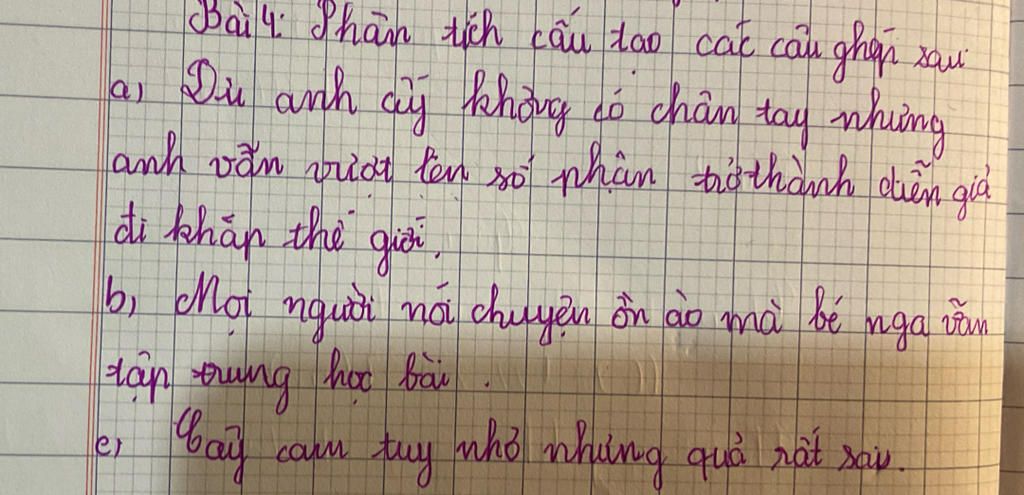 Bài 4: Phân tích cấu tạo các câu ghép sau
a) Dù anh ấy không có chân tay nhưng
anh vẫn vượt lên số phận trở thành diễn giả
đi khắp thế giới.
b) Mọi người nói chuyện ồn ào mà bé nga vẫn
tập trung học bài.
e) Cây cam tuy nhỏ nhưng quả rất sai.